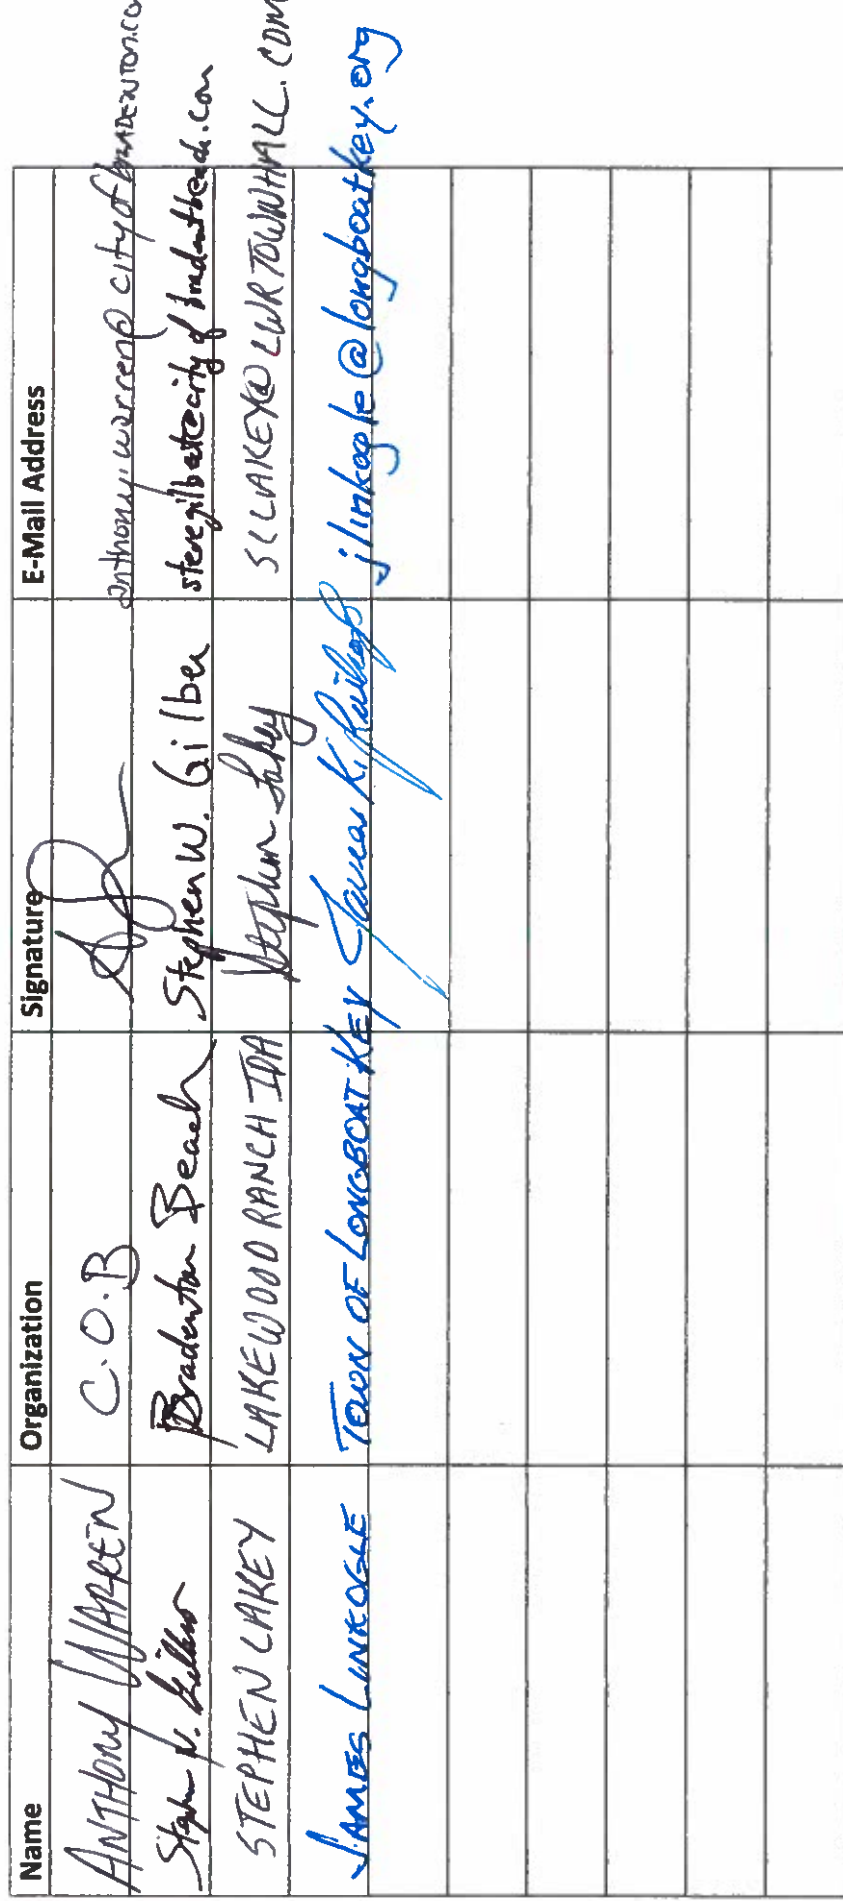 Name Organization Signature E-Mail Address
ANTHONY WARREN C.O.B anthony.warren@cityofbradenton.co
Stephen W. Gilbert Bradenton Beach Stephen W. Gilber stevegilbert@cityofbradentonbeach.com
STEPHEN LAKEY LAKEWOOD RANCH IDA Stephen Lakey SLLAKEY@LWRTOWNHALL.COM
JAMES LINKOGLE TOWN OF LONGBOAT KEY James K. Linkogle jlinkogle@longboatkey.org